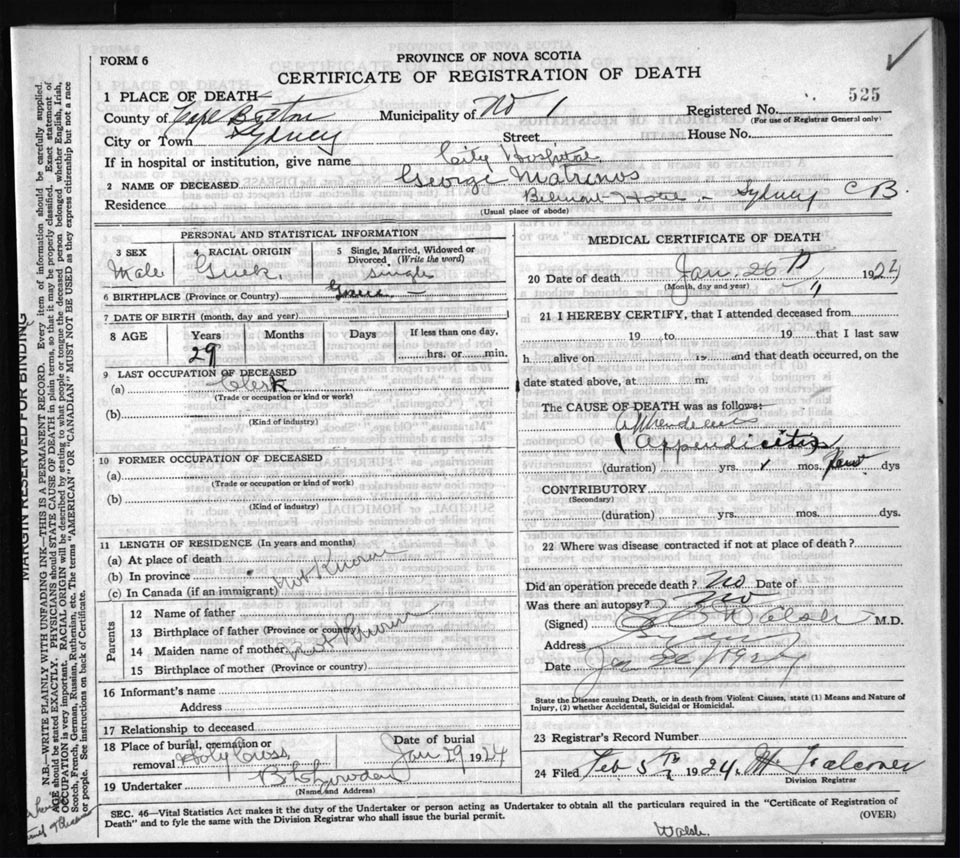 FORM 6
PROVINCE OF NOVA SCOTIA
CERTIFICATE OF REGISTRATION OF DEATH
525
1 PLACE OF DEATH
County of Cape Breton Municipality of No 1 Registered No.
(For use of Registrar General only)
City or Town Sydney Street House No.
If in hospital or institution, give name City Hospital
2 NAME OF DECEASED George Matrinos
Residence Belmont Hotel - Sydney C B.
(Usual place of abode)
PERSONAL AND STATISTICAL INFORMATION
3 SEX Male
4 RACIAL ORIGIN Greek.
5 Single, Married, Widowed or Divorced (Write the word) single
6 BIRTHPLACE (Province or Country) Greece
7 DATE OF BIRTH (month, day and year)
8 AGE Years 29 Months Days If less than one day, hrs. or min.
9 LAST OCCUPATION OF DECEASED
(a) Clerk
(Trade or occupation or kind of work)
(b)
(Kind of industry)
10 FORMER OCCUPATION OF DECEASED
(a)
(Trade or occupation or kind of work)
(b)
(Kind of industry)
11 LENGTH OF RESIDENCE (In years and months)
(a) At place of death
(b) In province
(c) In Canada (if an immigrant) Not Known
Parents
12 Name of father
13 Birthplace of father (Province or country)
14 Maiden name of mother not Known
15 Birthplace of mother (Province or country)
16 Informant's name
Address
17 Relationship to deceased
18 Place of burial, cremation or removal Holy Cross
Date of burial Jan 29 1924
19 Undertaker
(Name and Address)
MEDICAL CERTIFICATE OF DEATH
20 Date of death Jan. 26 1924
(Month, day and year)
21 I HEREBY CERTIFY, that I attended deceased from
19 to 19 that I last saw
h alive on 19 and that death occurred, on the
date stated above, at m.
The CAUSE OF DEATH was as follows:
Appendicitis
(Appendicitis)
(duration) yrs. mos. few dys
CONTRIBUTORY
(Secondary)
(duration) yrs. mos. dys.
22 Where was disease contracted if not at place of death?
Did an operation precede death? No Date of
Was there an autopsy? No
(Signed) Walsh M.D.
Address Sydney
Date Jan 26/1924
State the Disease causing Death, or in death from Violent Causes, state (1) Means and Nature of
Injury, (2) whether Accidental, Suicidal or Homicidal.
23 Registrar's Record Number
24 Filed Feb 5th 1924 M. Falconer
Division Registrar
SEC. 46—Vital Statistics Act makes it the duty of the Undertaker or person acting as Undertaker to obtain all the particulars required in the "Certificate of Registration of
Death" and to fyle the same with the Division Registrar who shall issue the burial permit.
(OVER)
Walsh.
MARGIN RESERVED FOR BINDING
N.B.—WRITE PLAINLY WITH UNFADING INK—THIS IS A PERMANENT RECORD. Every item of information should be carefully supplied.
AGE should be stated EXACTLY. PHYSICIANS should STATE CAUSE OF DEATH in plain terms, so that it may be properly classified. Exact statement of
OCCUPATION is very important. RACIAL ORIGIN will be described by stating to what people or tongue the deceased person belonged whether English, Irish,
Scotch, French, German, Russian, Ruthenian, etc. The terms "AMERICAN" OR "CANADIAN" MUST NOT BE USED as they express citizenship but not a race
or people. See instructions on back of Certificate.